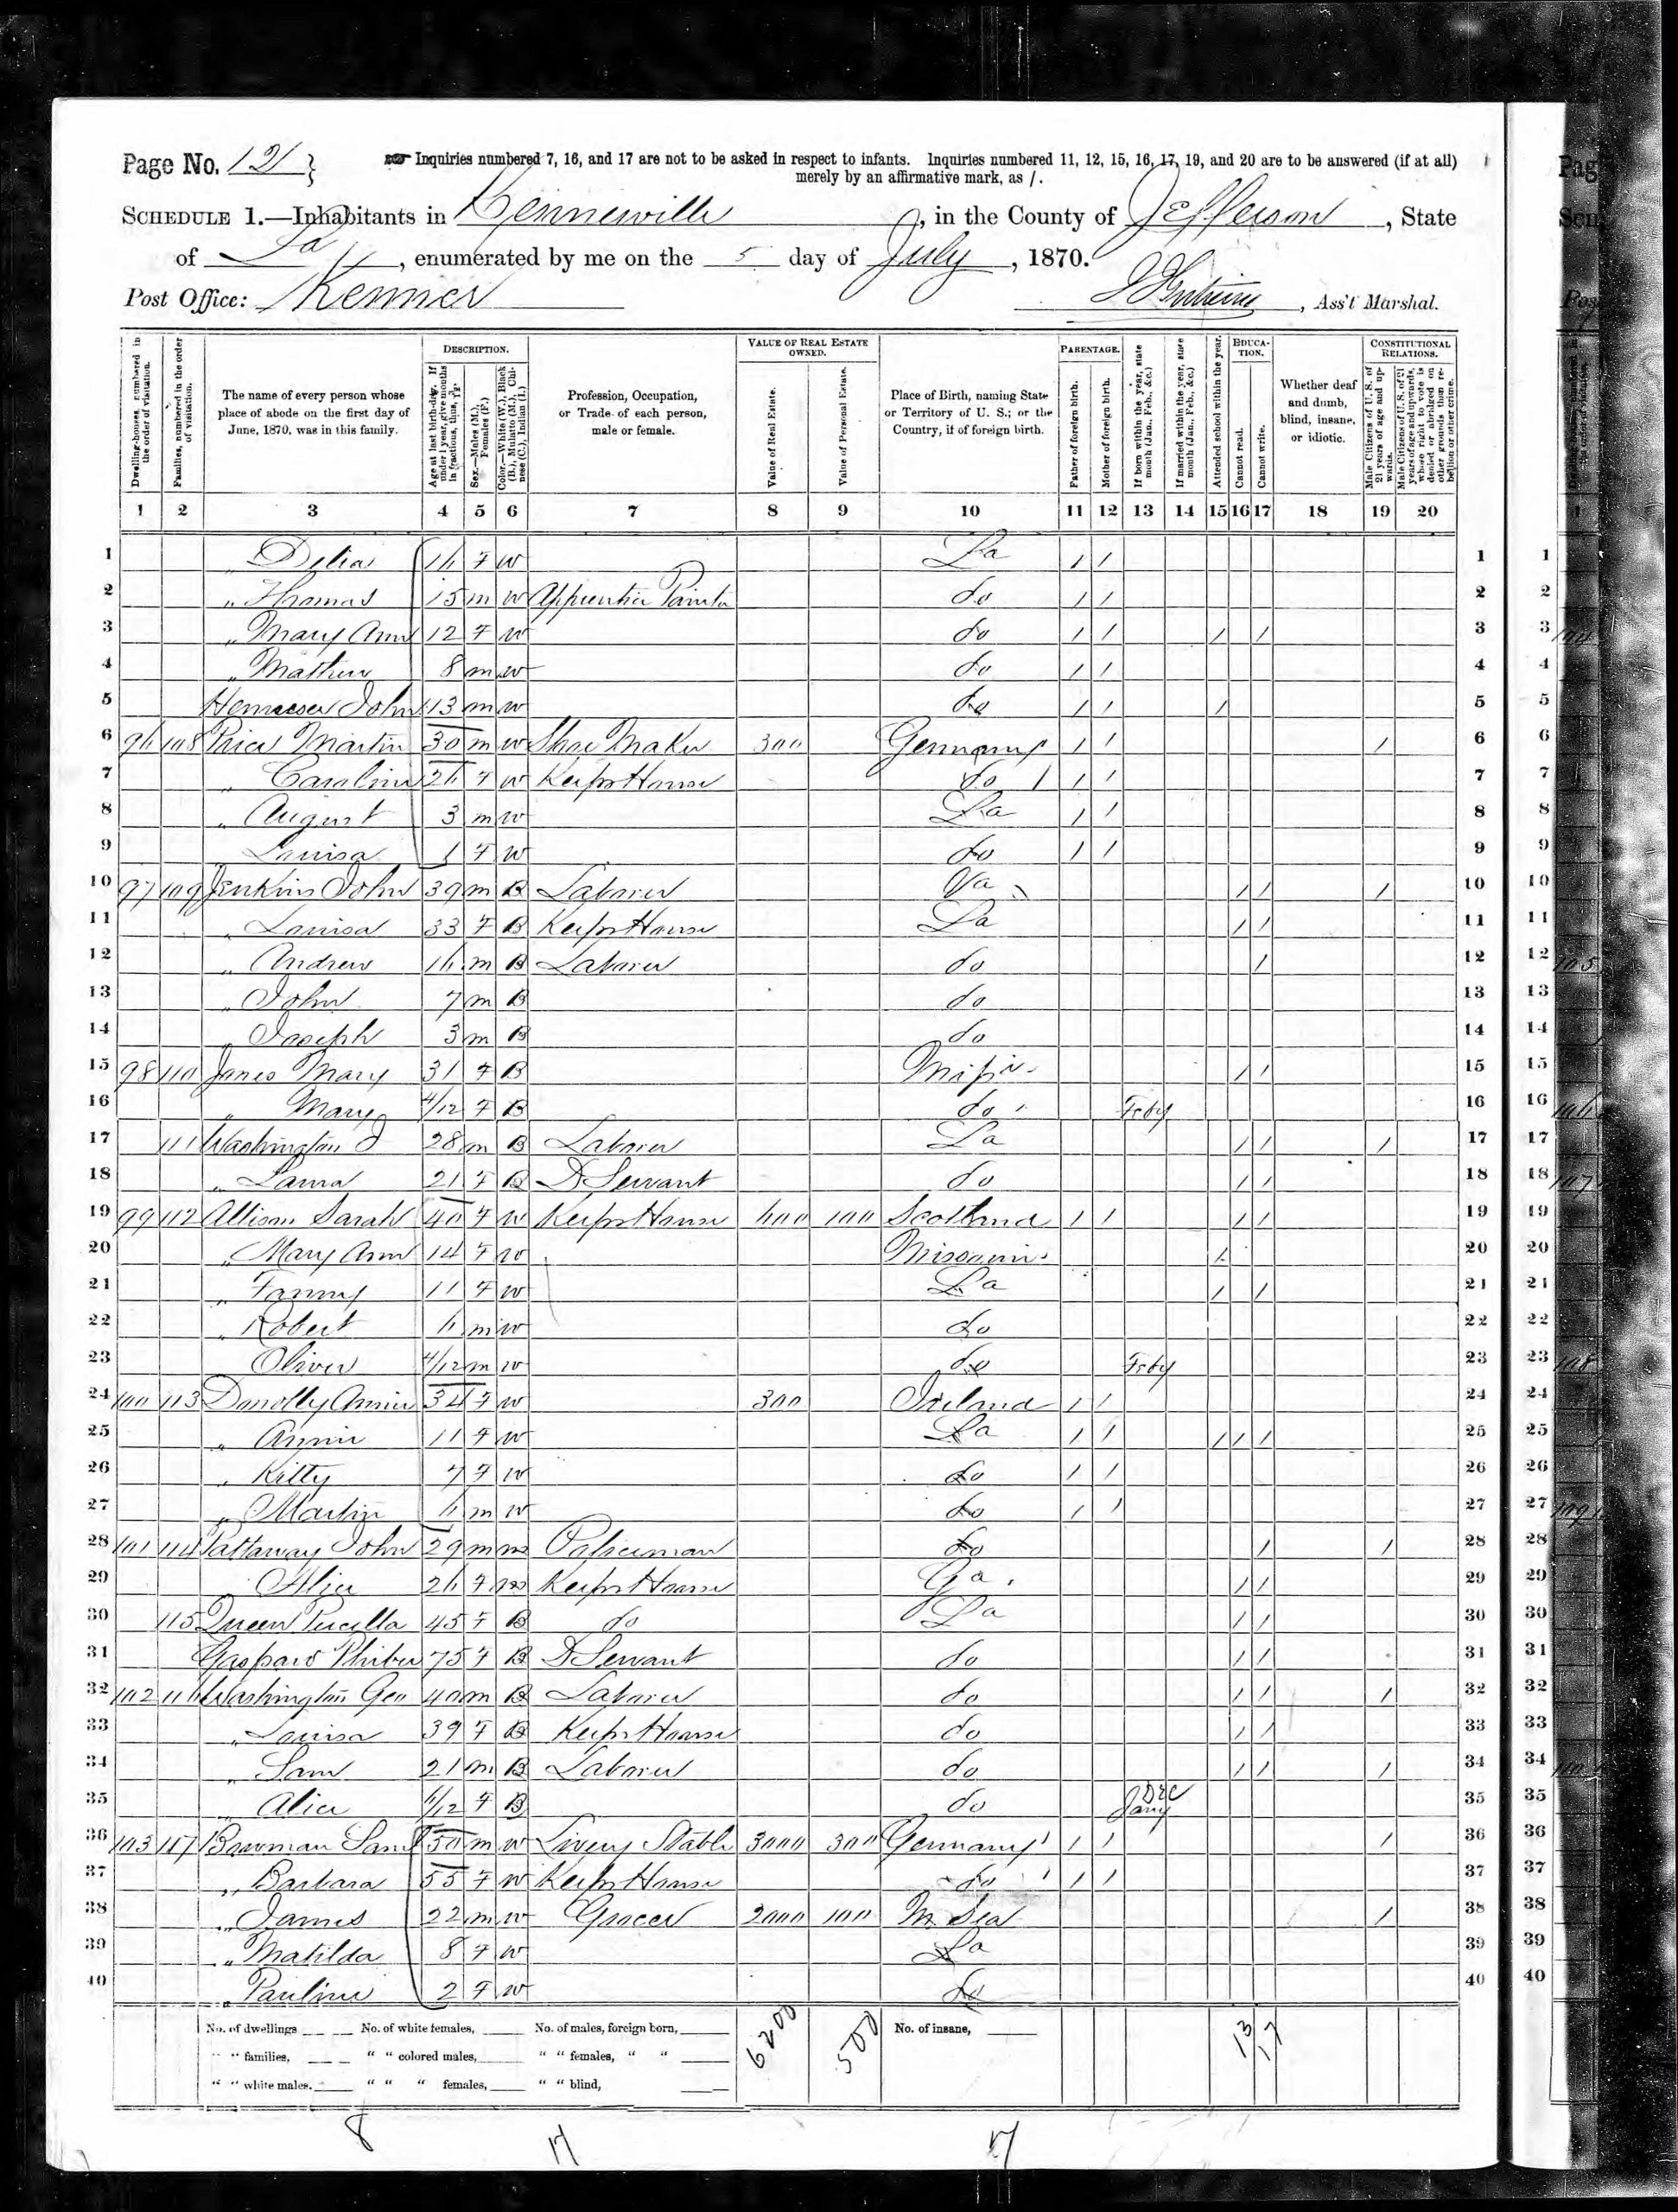 Page No. 121 } Inquiries numbered 7, 16, and 17 are not to be asked in respect to infants. Inquiries numbered 11, 12, 15, 16, 17, 19, and 20 are to be answered (if at all)
merely by an affirmative mark, as /.
SCHEDULE 1.—Inhabitants in Kennerville, in the County of Jefferson, State
of La, enumerated by me on the 5 day of July, 1870.
Post Office: Kenner , Ass't Marshal.
Dwelling-houses, numbered in the order of visitation.
Families, numbered in the order of visitation.
The name of every person whose place of abode on the first day of June, 1870, was in this family.
DESCRIPTION.
Age at last birth-day. If under 1 year, give months in fractions, thus, 3/12.
Sex.—Males (M.), Females (F.)
Color.—White (W.), Black (B.), Mulatto (M.), Chinese (C.), Indian (I.)
Profession, Occupation, or Trade of each person, male or female.
VALUE OF REAL ESTATE OWNED.
Value of Real Estate.
Value of Personal Estate.
Place of Birth, naming State or Territory of U. S.; or the Country, if of foreign birth.
PARENTAGE.
Father of foreign birth.
Mother of foreign birth.
If born within the year, state month (Jan., Feb., &c.)
If married within the year, state month (Jan., Feb., &c.)
Attended school within the year.
EDUCATION.
Cannot read.
Cannot write.
Whether deaf and dumb, blind, insane, or idiotic.
CONSTITUTIONAL RELATIONS.
Male Citizens of U. S. of 21 years of age and upwards.
Male Citizens of U. S. of 21 years of age and upwards, whose right to vote is denied or abridged on other grounds than rebellion or other crime.
1 2 3 4 5 6 7 8 9 10 11 12 13 14 15 16 17 18 19 20
1 " Delia 16 F W La / / 1
2 " Thomas 15 m W Apprentice Painter do / / 2
3 " Mary Ann 12 F W do / / / / 3
4 " Mathew 8 m W do / / 4
5 John 13 m W do / / / 5
6 96 108 Price Martin 30 m W Shoe Maker 300 Germany / / / 6
7 " Caroline 26 F W Keeps House do / / 7
8 " August 3 m W La / / 8
9 " Louisa 1 F W do / / 9
10 97 109 Jenkins John 39 m B Laborer Va / / / 10
11 " Louisa 33 F B Keeps House La / / 11
12 " Andrew 16 m B Laborer do / 12
13 " John 7 m B do 13
14 " Joseph 3 m B do 14
15 98 110 Jones Mary 31 F B Missi / / 15
16 " Mary 4/12 F B do Feby 16
17 111 Washington J 28 m B Laborer La / / / 17
18 " Laura 21 F B D Servant do / / 18
19 99 112 Allison Sarah 40 F W Keeps House 600 100 Scotland / / / / 19
20 " Mary Ann 14 F W Missouri / 20
21 " Fanny 11 F W La / / 21
22 " Robert 6 m W do 22
23 Oliver 4/12 m W do Feby 23
24 100 113 Donolly Annie 34 F W 300 Ireland / / 24
25 " Annie 11 F W La / / / / / 25
26 " Kitty 7 F W do / / 26
27 " Martin 6 m W do / / 27
28 101 114 Pattaway John 29 m m Policeman do / / 28
29 " Alice 26 F m Keeps House Ga / / 29
30 115 Queen Pucilla 45 F B do La / / 30
31 Gaspard 75 F B D Servant do / / 31
32 102 116 Washington Geo 40 m B Laborer do / / / 32
33 " Louisa 39 F B Keeps House do / / 33
34 " Sam 21 m B Laborer do / / / 34
35 " Alice 6/12 F B do Dec Jany 35
36 103 117 Bowman Saml 50 m W Livery Stable 3000 300 Germany / / / 36
37 " Barbara 55 F W Keeps House do / / 37
38 " James 22 m W Grocer 2000 100 Sea / 38
39 " Matilda 8 F W La 39
40 " Pauline 2 F W do 40
No. of dwellings No. of white females, No. of males, foreign born, 6200 500 No. of insane, 13 17
" " families, " " colored males, " " females, " "
" " white males, " " " females, " " blind,
8 17 17